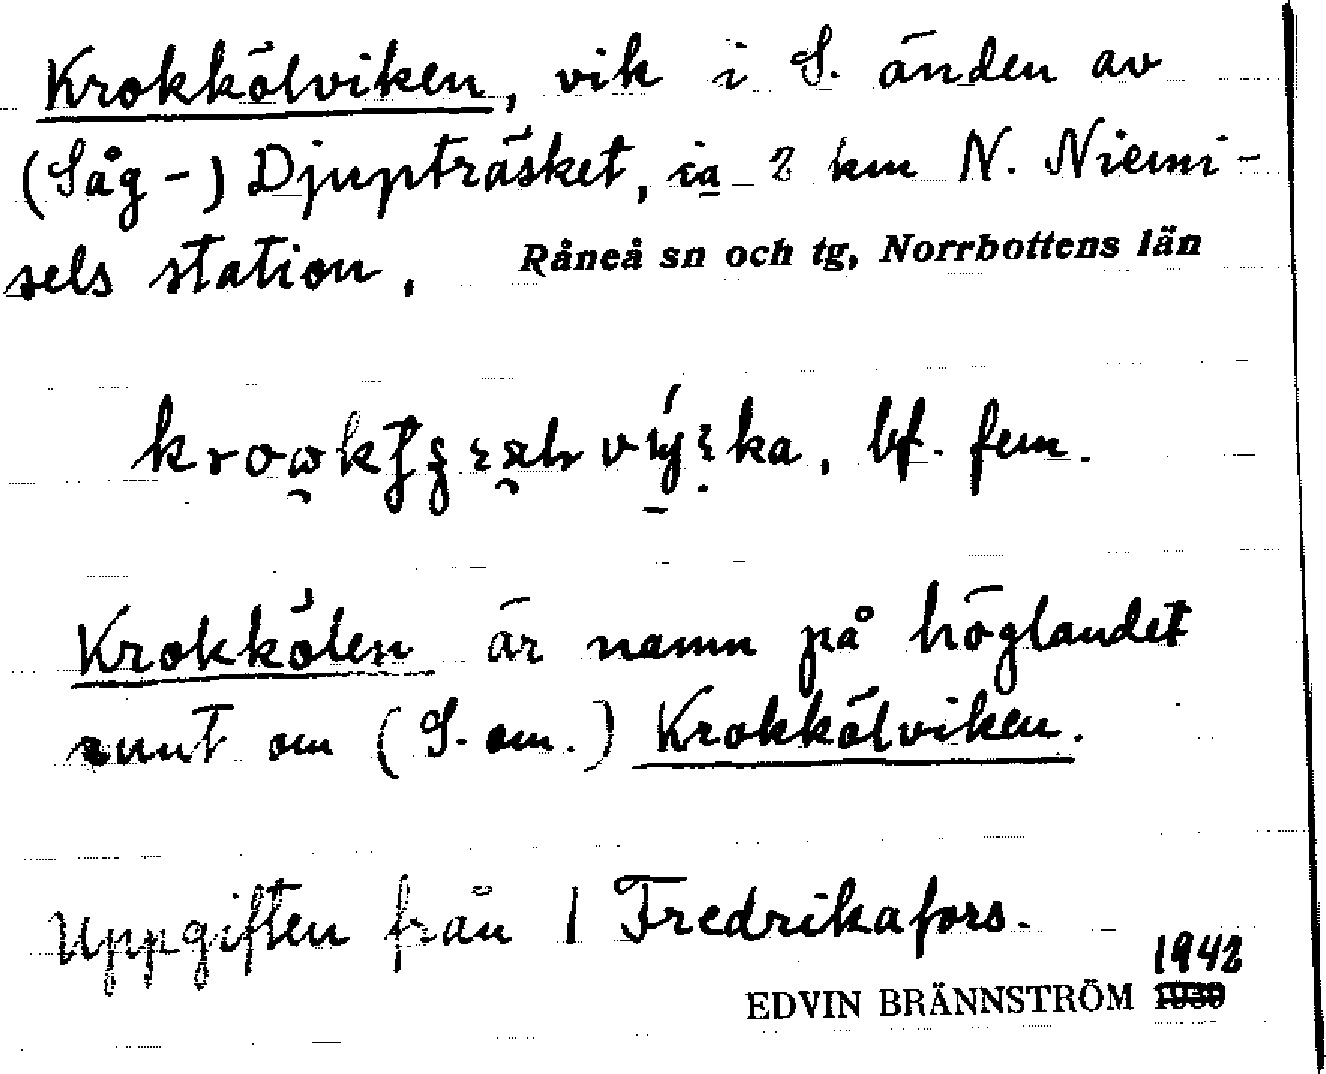 Krokkölviken, vik i S. änden av
(Såg-) Djupträsket, ca 2 km N. Niemi-
sels station. Råneå sn och tg, Norrbottens län
bf. fem.
Krokkölen är namn på höglandet
runt om (S. om.) Krokkölviken.
Uppgiften från 1 Fredrikafors.
1942
EDVIN BRÄNNSTRÖM 1939